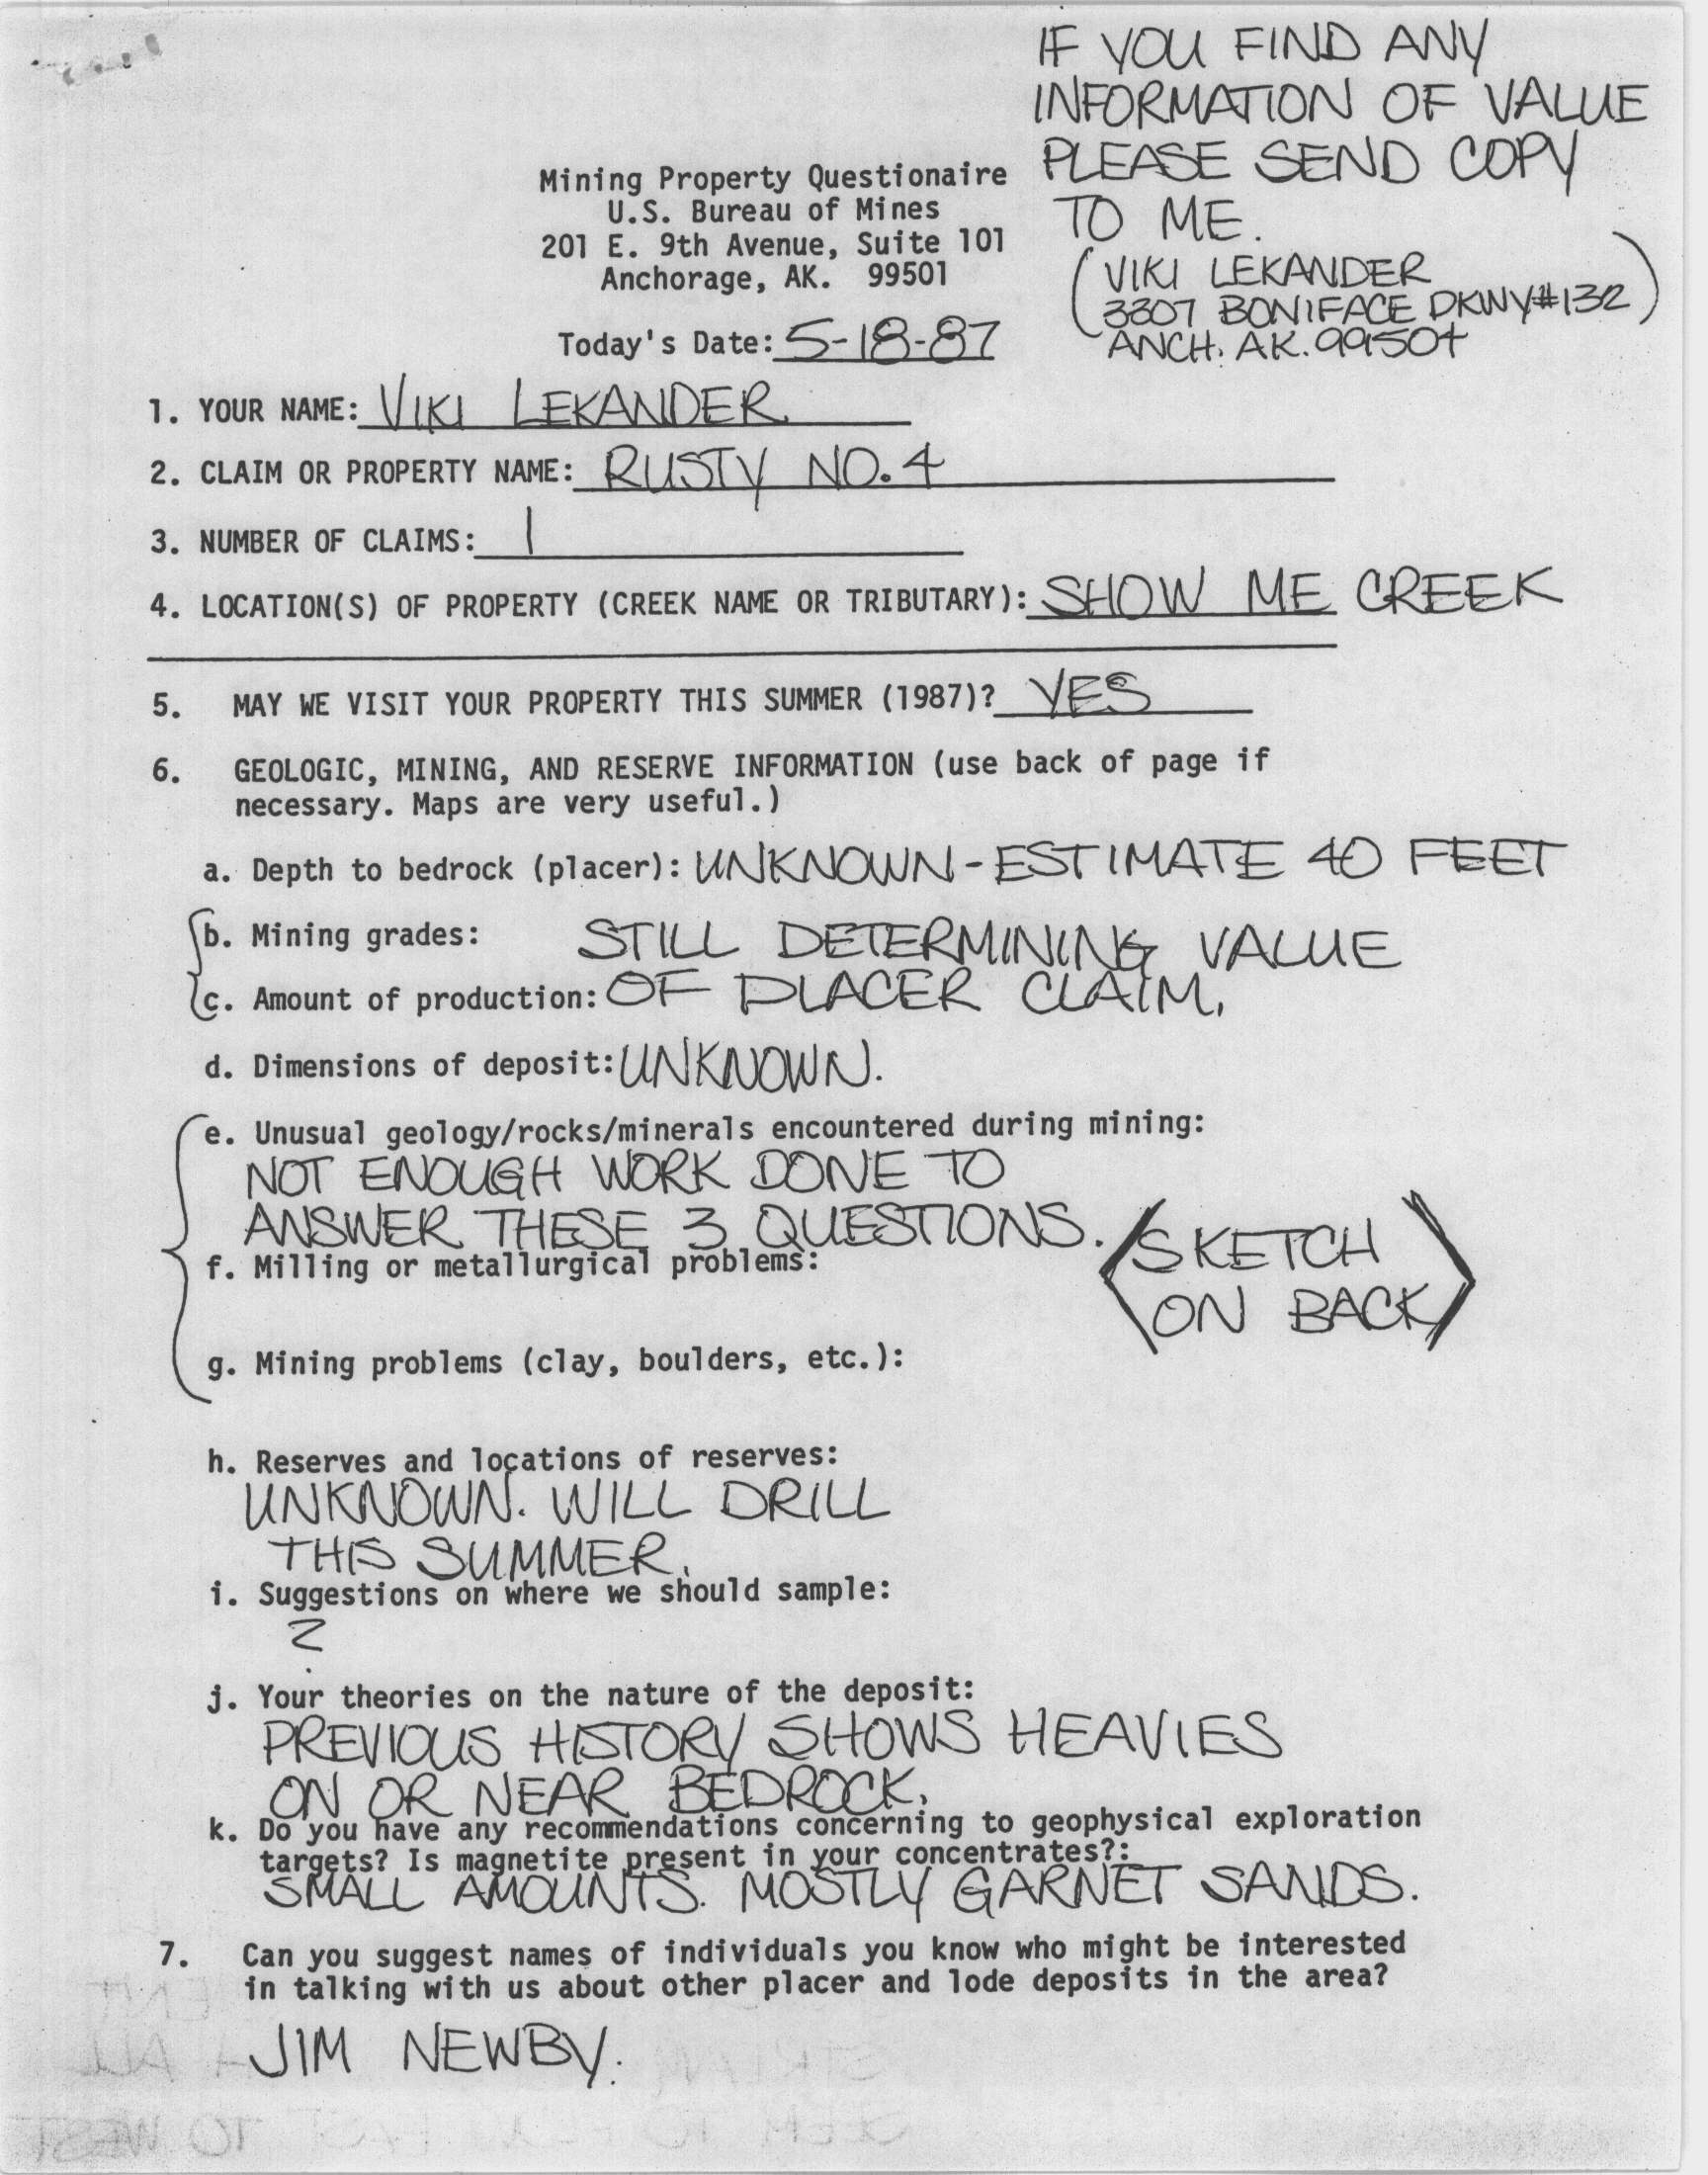 IF YOU FIND ANY
INFORMATION OF VALUE
PLEASE SEND COPY
TO ME.
(VIKI LEKANDER
3307 BONIFACE PKWY #132)
ANCH. AK. 99504
Mining Property Questionaire
U.S. Bureau of Mines
201 E. 9th Avenue, Suite 101
Anchorage, AK. 99501
Today's Date: 5-18-87
1. YOUR NAME: VIKI LEKANDER
2. CLAIM OR PROPERTY NAME: RUSTY NO. 4
3. NUMBER OF CLAIMS: 1
4. LOCATION(S) OF PROPERTY (CREEK NAME OR TRIBUTARY): SHOW ME CREEK
5. MAY WE VISIT YOUR PROPERTY THIS SUMMER (1987)? YES
6. GEOLOGIC, MINING, AND RESERVE INFORMATION (use back of page if
necessary. Maps are very useful.)
a. Depth to bedrock (placer): UNKNOWN - ESTIMATE 40 FEET
b. Mining grades: STILL DETERMINING VALUE
c. Amount of production: OF PLACER CLAIM.
d. Dimensions of deposit: UNKNOWN.
e. Unusual geology/rocks/minerals encountered during mining:
NOT ENOUGH WORK DONE TO
ANSWER THESE 3 QUESTIONS.
<SKETCH
ON BACK>
f. Milling or metallurgical problems:
g. Mining problems (clay, boulders, etc.):
h. Reserves and locations of reserves:
UNKNOWN. WILL DRILL
THIS SUMMER.
i. Suggestions on where we should sample:
?
j. Your theories on the nature of the deposit:
PREVIOUS HISTORY SHOWS HEAVIES
ON OR NEAR BEDROCK.
k. Do you have any recommendations concerning to geophysical exploration
targets? Is magnetite present in your concentrates?:
SMALL AMOUNTS. MOSTLY GARNET SANDS.
7. Can you suggest names of individuals you know who might be interested
in talking with us about other placer and lode deposits in the area?
JIM NEWBY.